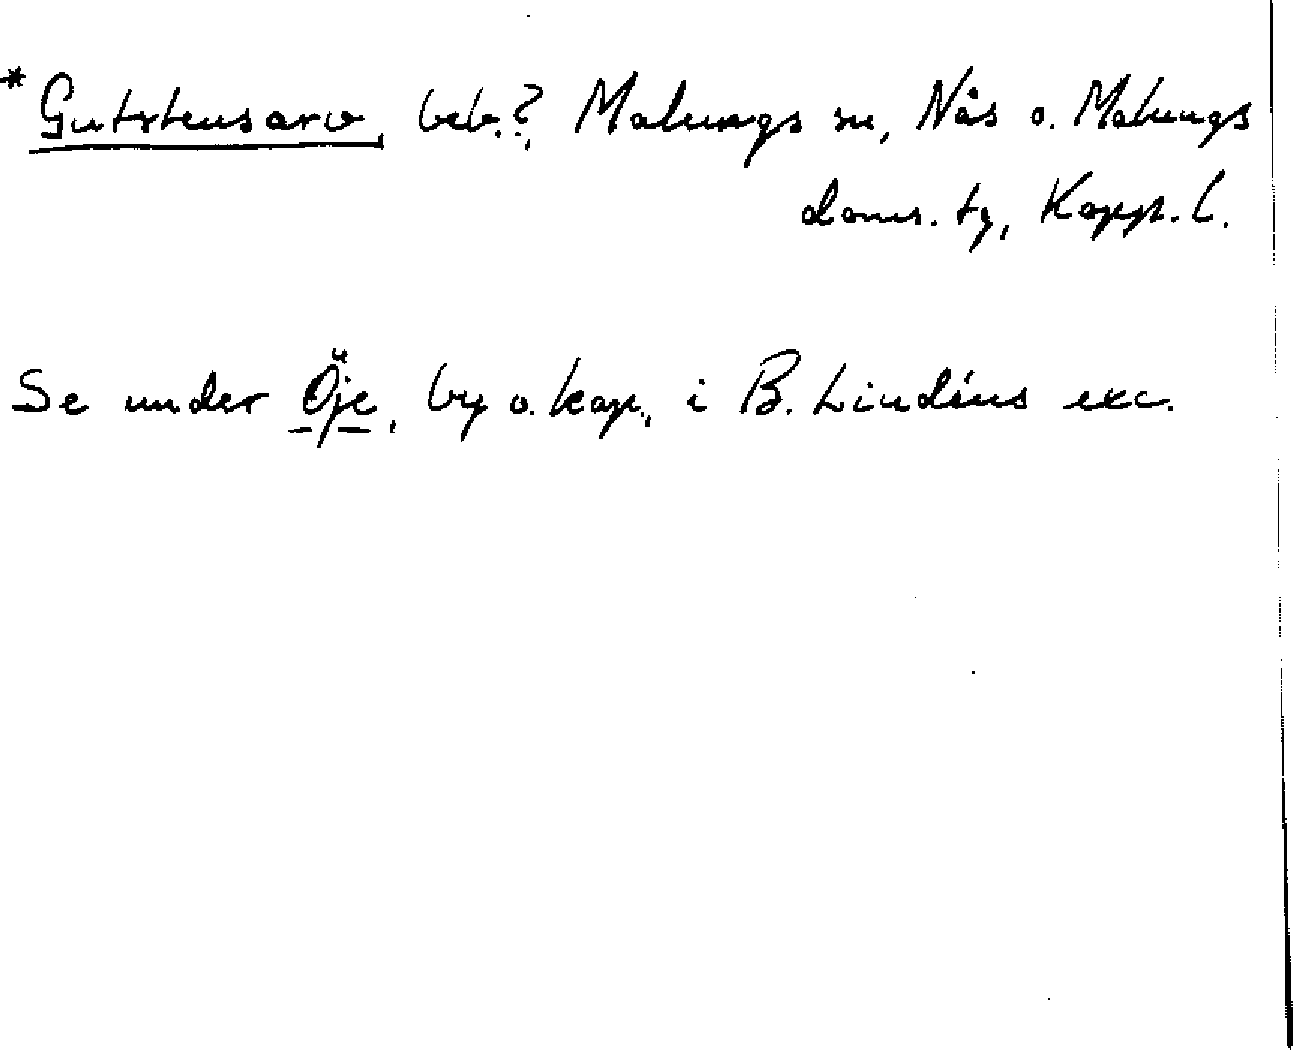 *Gutstensarv, beb.?, Malungs sn, Nås o. Malungs
doms. tg, Kopp. l.
Se under Öje, by o. kap., i B. Lindéns exc.